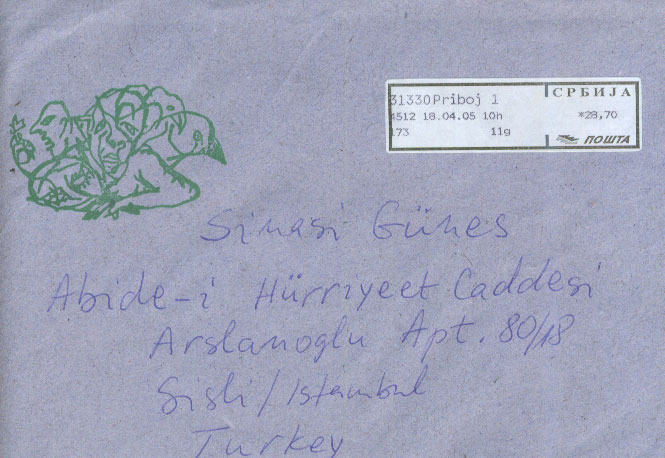 31330Priboj 1
СРБИЈА
4512 18.04.05 10h
*28,70
173 11g
ПОШТА
Sinasi Günes
Abide-i Hürriyeet Caddesi
Arslanoglu Apt. 80/18
Sisli/Istanbul
Turkey